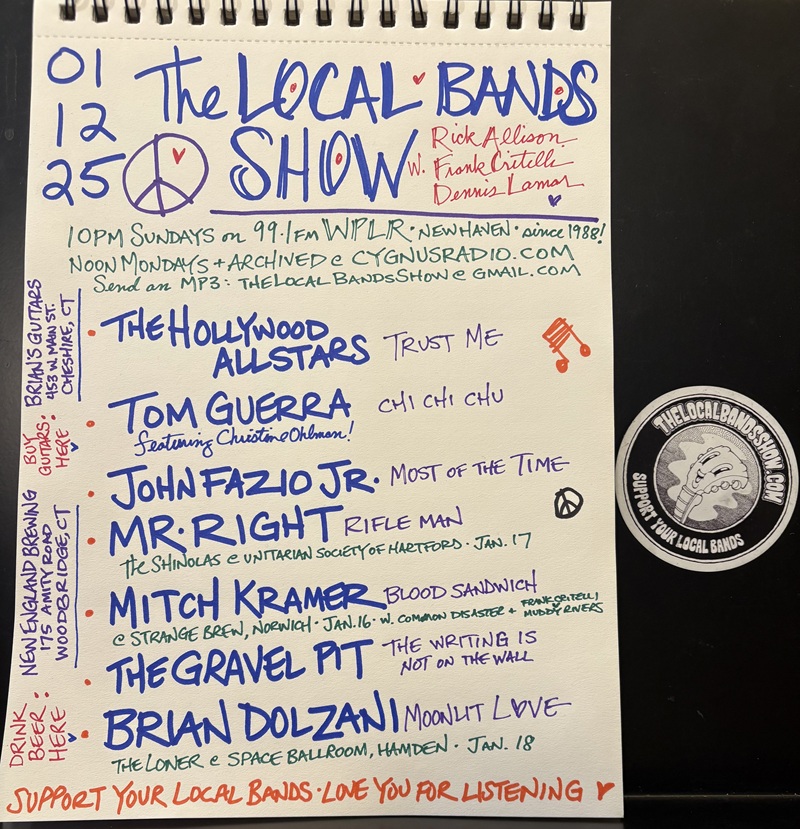 01
12
25
The LOCAL BANDS
SHOW
w. Rick Allison
Frank Critelli
Dennis Lamar
10PM SUNDAYS on 99.1FM WPLR · NEW HAVEN · since 1988!
NOON MONDAYS + ARCHIVED @ CYGNUSRADIO.COM
Send an MP3: THELOCALBANDSSHOW@GMAIL.COM
THE HOLLYWOOD
ALLSTARS TRUST ME
TOM GUERRA CHI CHI CHU
featuring Christine Ohlman!
JOHN FAZIO JR. MOST OF THE TIME
MR. RIGHT RIFLE MAN
the SHINOLAS @ UNITARIAN SOCIETY OF HARTFORD · JAN. 17
MITCH KRAMER BLOOD SANDWICH
@ STRANGE BREW, NORWICH · JAN. 16 · W. COMMON DISASTER + FRANK CRITELLI
MUDDY RIVERS
THE GRAVEL PIT THE WRITING IS
NOT ON THE WALL
BRIAN DOLZANI MOONLIT LOVE
THE LONER @ SPACE BALLROOM, HAMDEN · JAN. 18
SUPPORT YOUR LOCAL BANDS · LOVE YOU FOR LISTENING
BUY
GUITARS:
HERE
BRIAN'S GUITARS
453 W. MAIN ST.
CHESHIRE, CT
DRINK
BEER:
HERE
NEW ENGLAND BREWING
175 AMITY ROAD
WOODBRIDGE, CT
THELOCALBANDSSHOW.COM
SUPPORT YOUR LOCAL BANDS